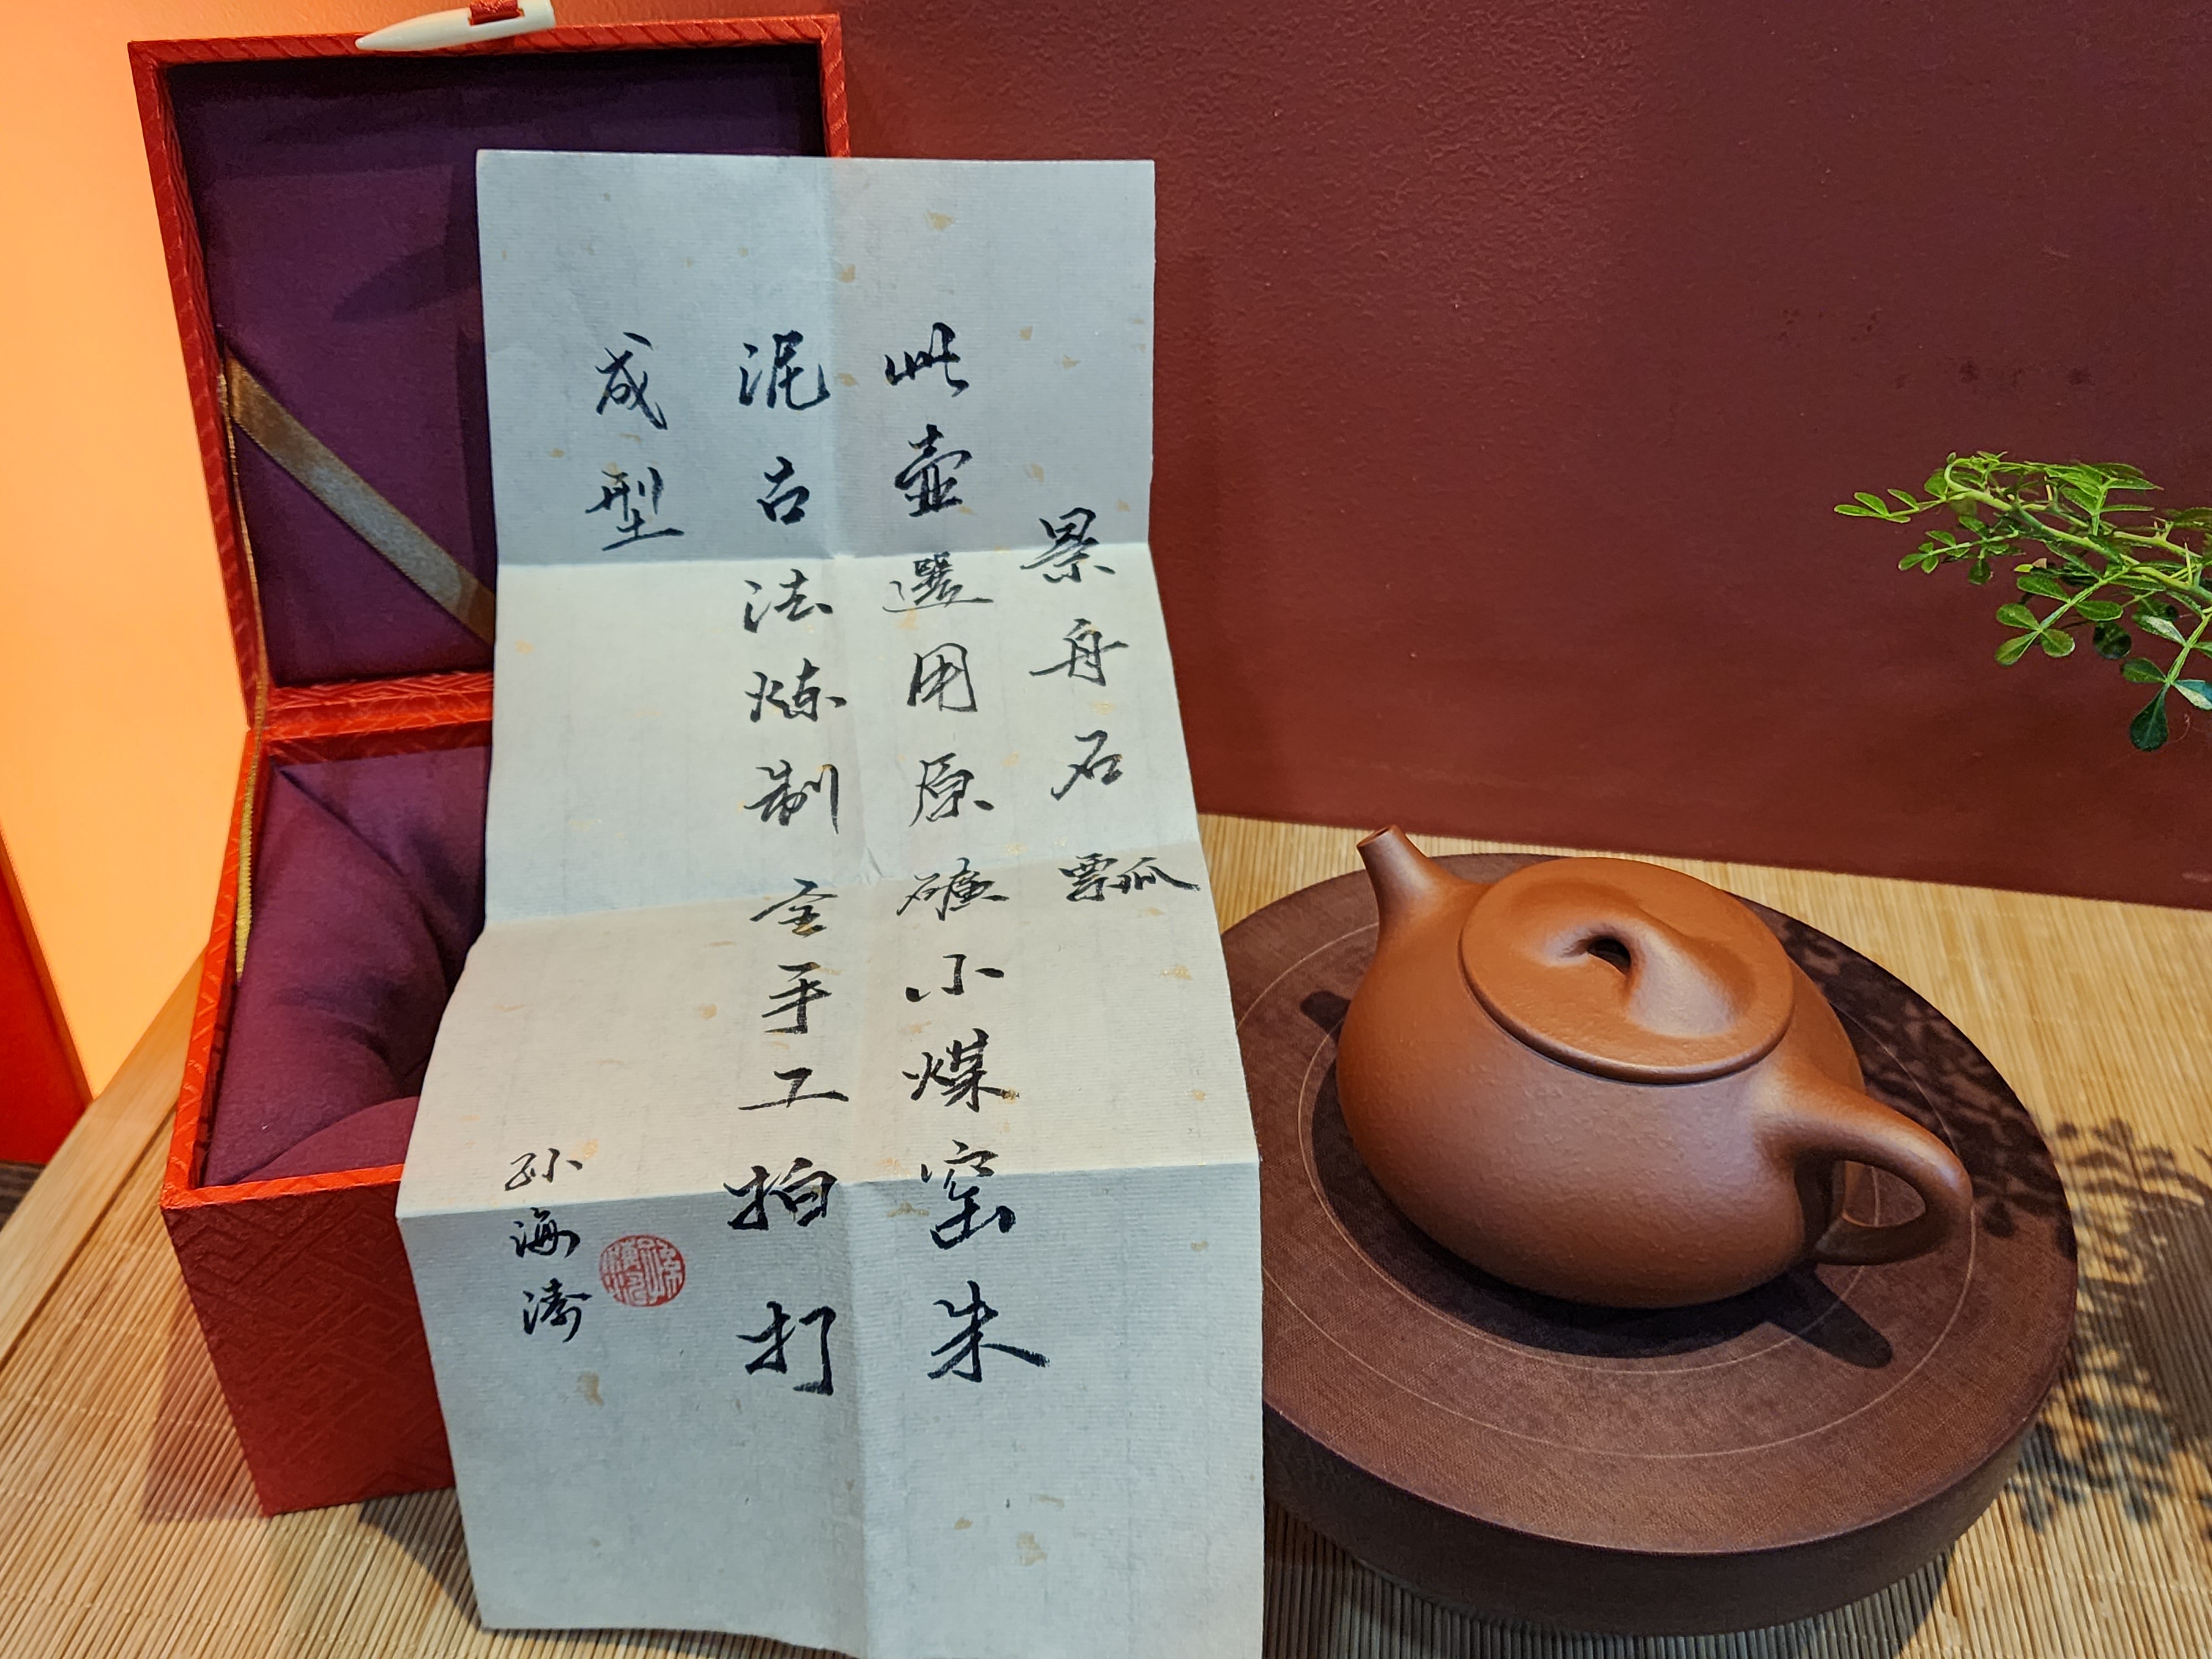 景舟石瓢
此壶選用原礦小煤窑朱
泥古法炼制全手工拍打
成型
孙海涛